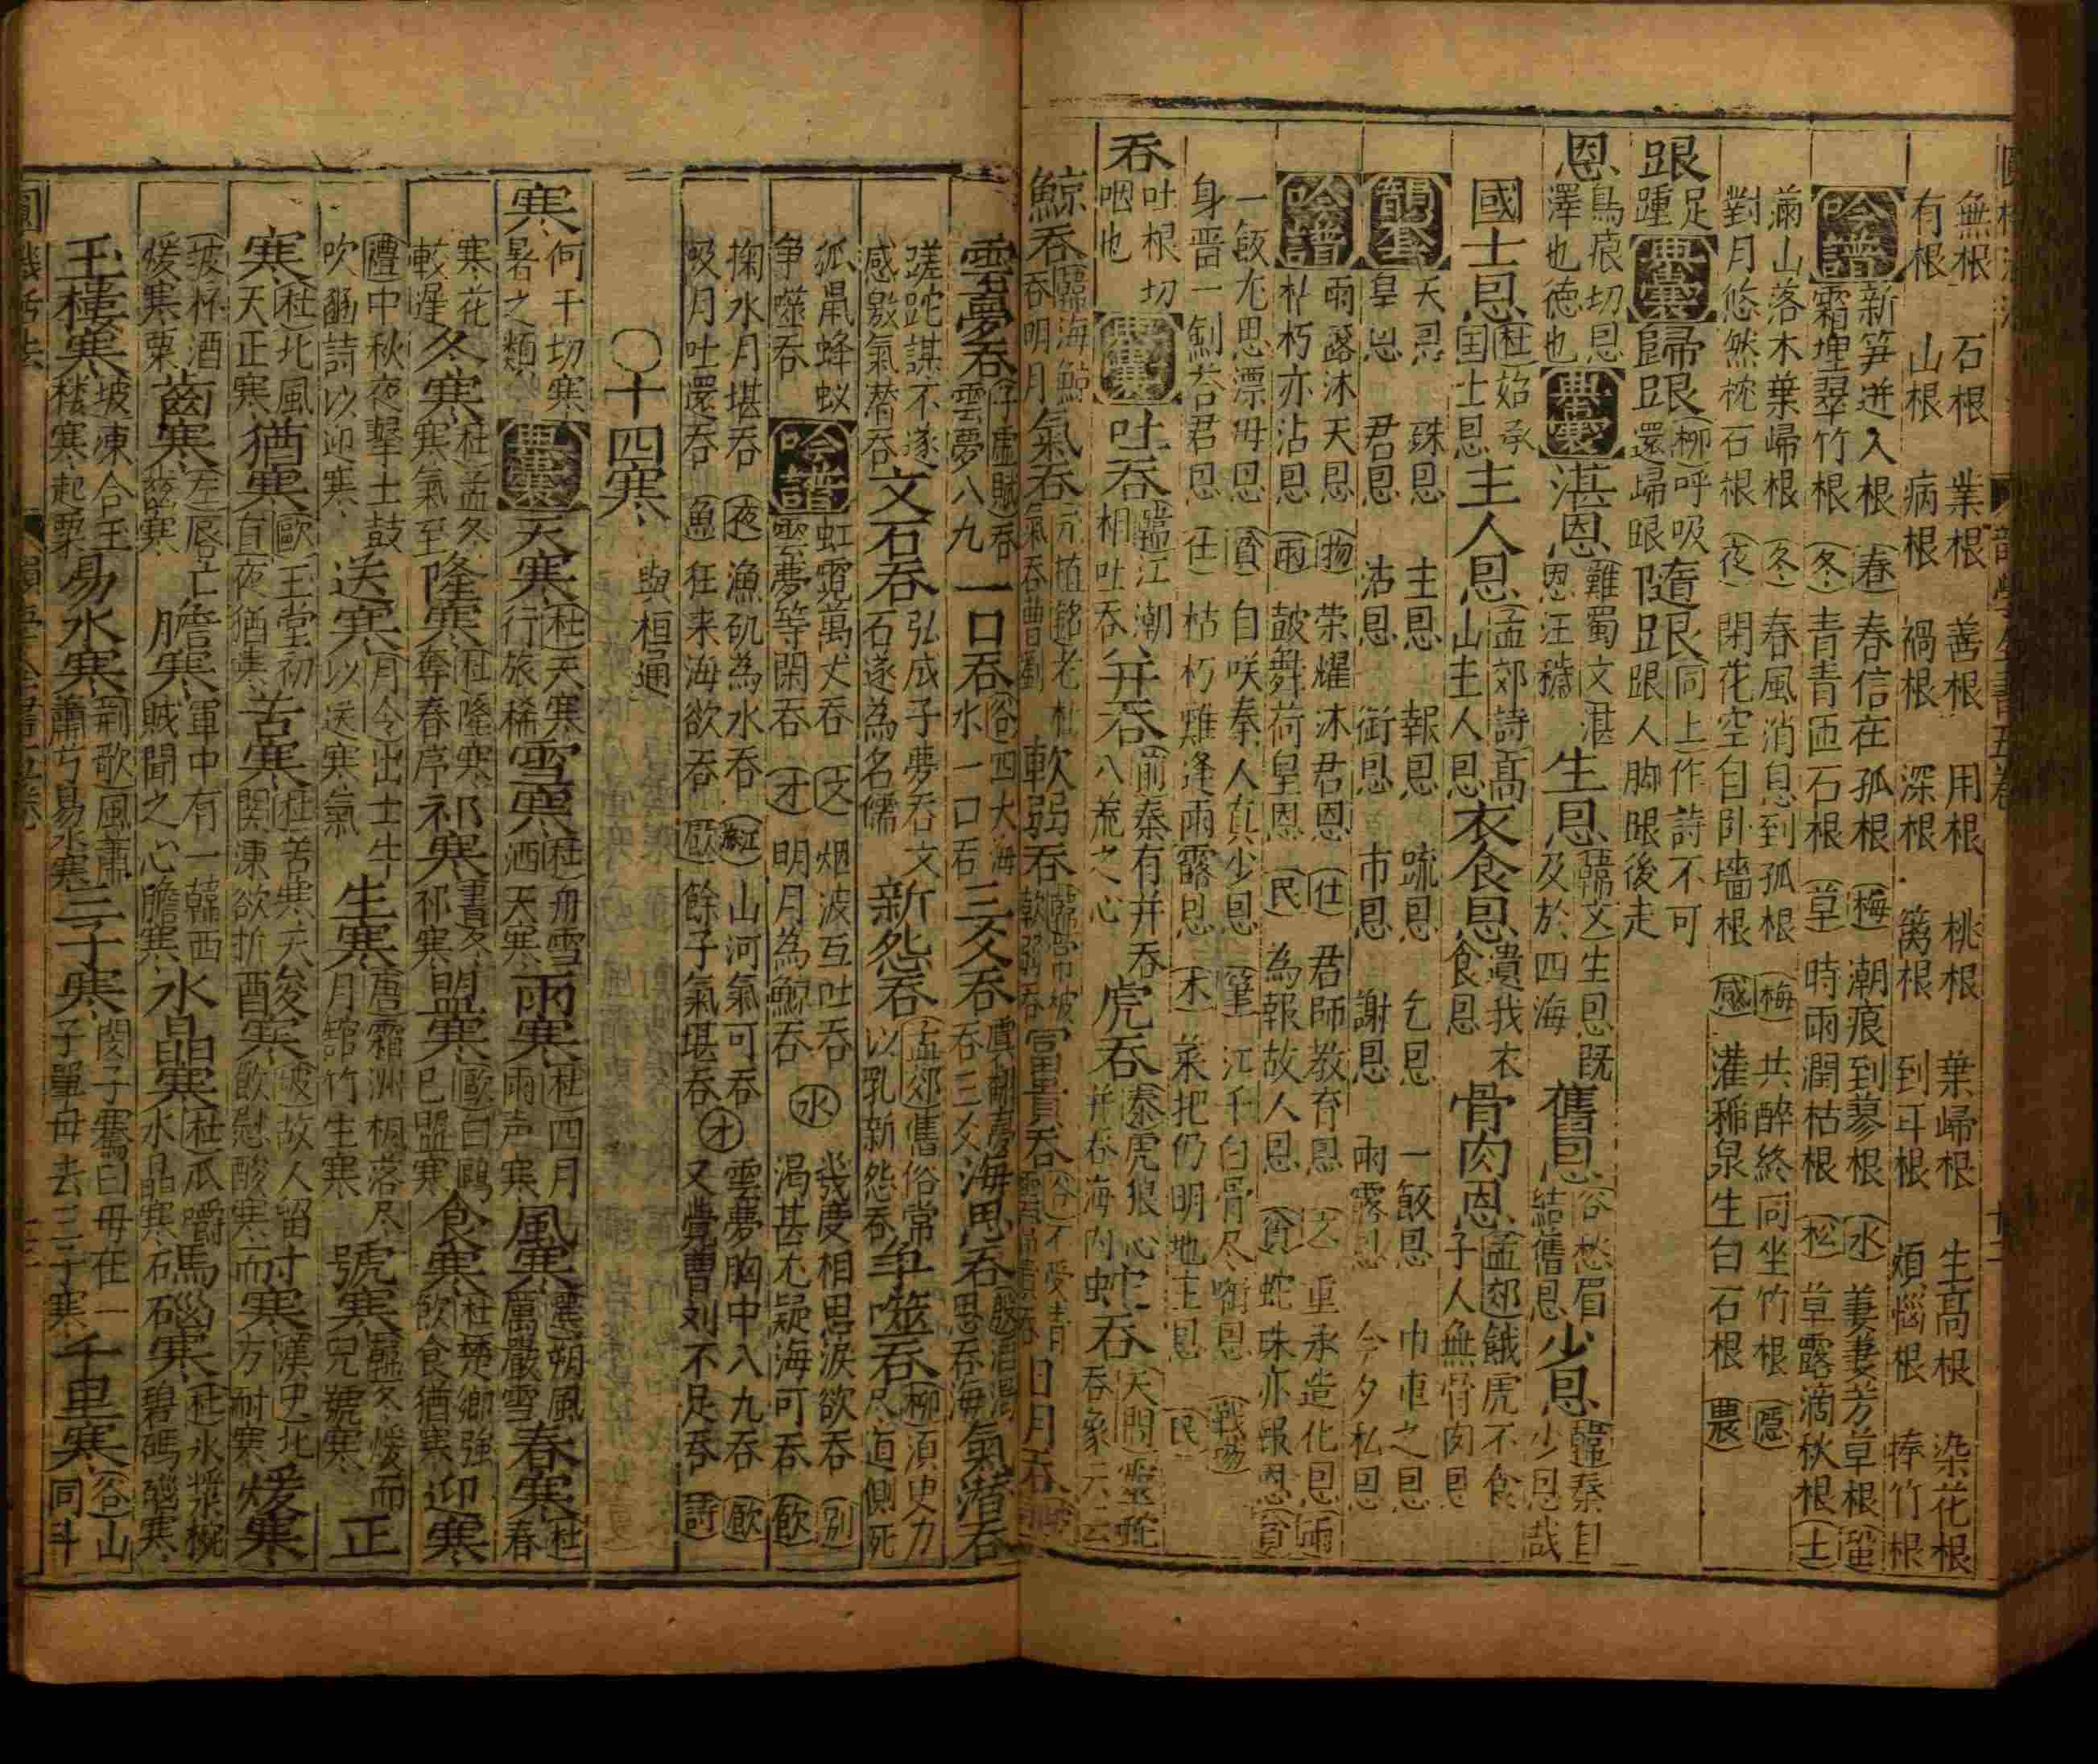 無根　石根　業根　善根　用根　桃根　葉歸根　生高根　染花根
有根　山根　病根　禍根　深根　篱根　到耳根　煩惱根　捧竹根
吟譜
新笋迸入根（春）春信在孤根（梅）潮痕到蓼根（水）萋萋芳草根（蛩）
霜埋翠竹根（冬）青青匝石根（草）時雨潤枯根（松）草露滴秋根（士）
滿山落木葉歸根（冬）春風消息到孤根（梅）共醉終同坐竹根（隱）
對月悠然枕石根（夜）閉花空自卧墻根（感）灌稀泉生白石根（農）
跟
足
踵
典囊
歸跟
柳呼吸
還歸跟
隨跟
同上作詩不可
跟人脚跟後走
恩
烏痕切恩
澤也德也
典囊
湛恩
難蜀文湛
恩汪穢
生恩
韓文生恩既
及於四海
舊恩
谷愁眉
結舊恩
少恩
韓秦自
少恩哉
國士恩
杜始承
国士恩
主人恩
孟郊詩高
山主人恩
衣食恩
遺我衣
食恩
骨肉恩
孟郊餓虎不食
子人無骨肉恩
韻套
天恩　殊恩　主恩　報恩　疏恩　乞恩　一飯恩　巾車之恩
皇恩　君恩　沽恩　銜恩　市恩　謝恩　雨露恩　今夕私恩
吟譜
雨露沐天恩（物）荣耀沐君恩（仕）君師教育恩　重承造化恩（雨）
朴朽亦沾恩（雨）皷舞荷皇恩（民）為報故人恩（貧）蛇珠亦報恩（貧）
一飯尤思漂母恩（貧）自咲奉人真少恩（筆）江干白骨尽啣恩（戰場）
身啬一劍荅君恩（仕）枯朽难逢雨露恩（木）菜把仍明地主恩（民）
吞
吐根切
咽也
典囊
吐吞
韓江潮
相吐吞
并吞
前秦有并吞
八荒之心
虎吞
秦虎狼心
并吞海内
蛇吞
天問靈蛇
吞象云云
鯨吞
韓海鯨
吞明月
氣吞
氣吞曹劉
軟弱吞
軟弱吞
富貴吞
日月吞
雲夢吞
子虛賦吞
雲夢八九
一口吞
谷四大海
水一口吞
三爻吞
虞翻夢
吞三爻
海思吞
思吞海
氣潛吞
蹉跎謀不遂
感激氣潛吞
文石吞
弘成子夢吞文
石遂為名儒
新怨吞
孟郊舊俗常
以乳新怨吞
争噬吞
柳須臾力
尽道側死
狐鼠蜂蚁
争噬吞
吟譜
虹霓萬丈吞（文）烟波互吐吞（水）幾度相思淚欲吞（別）
雲夢等閑吞（才）明月為鯨吞　渴甚尤疑海可吞（飲）
掬水月堪吞（夜）漁矶為水吞　山河氣可吞（才）雲夢胸中入九吞（飲）
吸月吐還吞（魚）狂来海欲吞　餘子氣堪吞　又覺曹刘不足吞（詩）
○十四寒　與桓通
寒
何干切寒
暑之類
典囊
天寒
杜天寒
行旅稀
雪寒
杜舟雪
洒天寒
雨寒
杜四月
雨声寒
風寒
選朔風
厲嚴雪
春寒
杜
春
寒花
較遲
冬寒
杜孟冬
寒氣至
隆寒
杜隆寒
奪春序
祁寒
書冬
祁寒
盟寒
歐白鷗
已盟寒
食寒
杜楚鄉強
飲食猶寒
迎寒
禮中秋夜擊土鼓
吹豳詩以迎寒
送寒
月令出土牛
以送寒氣
生寒
唐霜洲楓落尽
月舘竹生寒
號寒
韓冬煖而
兒號寒
正
寒
杜北風
天正寒
猶寒
歐玉堂初
直夜猶寒
苦寒
杜苦寒天
関凍欲折
酸寒
坡故人留
飲慰酸寒
耐寒
漢史北
方耐寒
煖寒
坡杯酒
煖寒栗
齒寒
左唇亡
齒寒
膽寒
軍中有一韓西
賊聞之心膽寒
水晶寒
杜瓜嚼
水晶寒
瑪瑙寒
杜氷漿椀
碧碼磁寒
玉樓寒
坡凍合玉
樓寒起栗
易水寒
荊歌風蕭
蕭兮易水寒
三子寒
閔子騫曰母在一
子單母去三子寒
千里寒
谷山
同斗